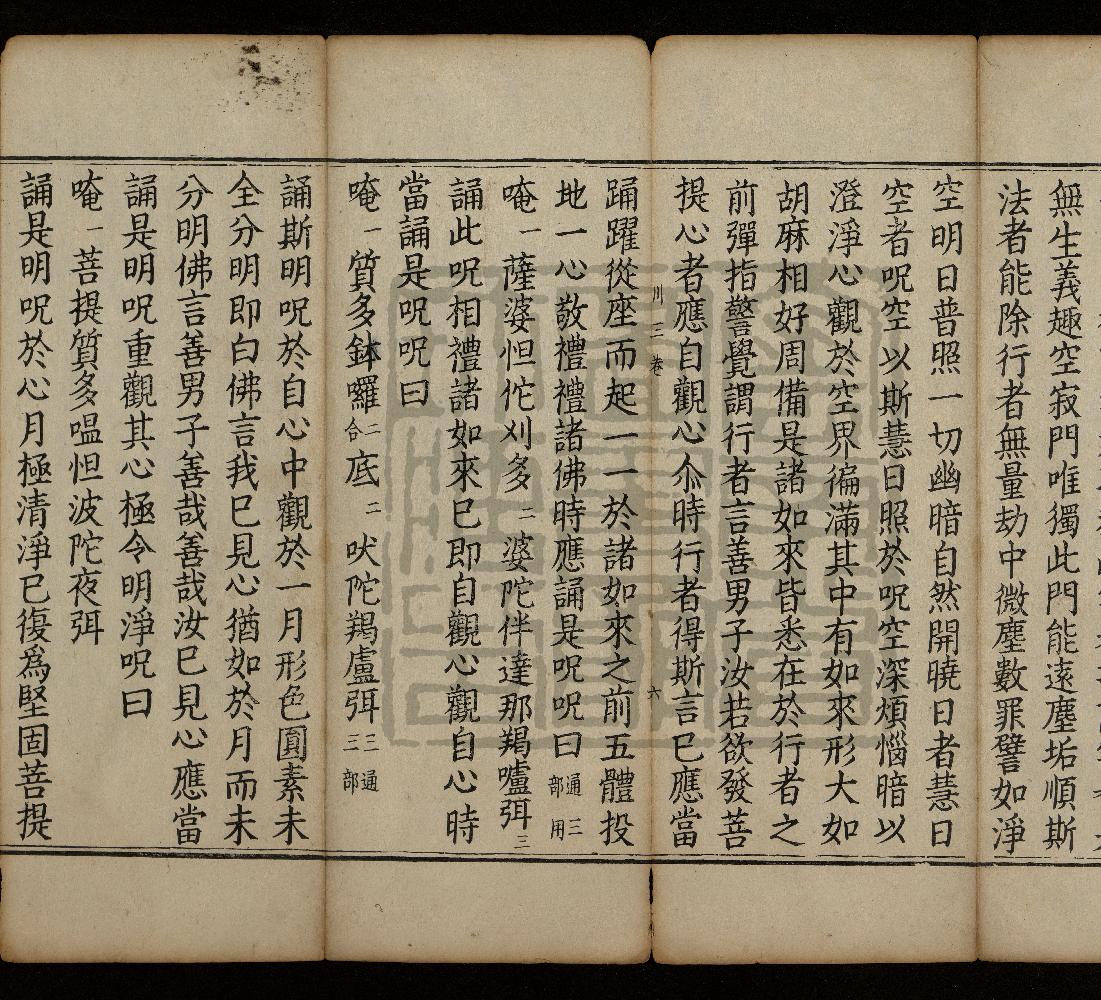 無生義趣空寂門唯獨此門能遠塵垢順斯
法者能除行者無量劫中微塵數罪譬如淨
空明日普照一切幽暗自然開曉日者慧日
空者呪空以斯慧日照於呪空深煩惱暗以
澄淨心觀於空界徧滿其中有如來形大如
胡麻相好周備是諸如來皆悉在於行者之
前彈指警覺謂行者言善男子汝若欲發菩
提心者應自觀心尒時行者得斯言已應當
川三卷 六
踊躍從座而起一一於諸如來之前五體投
地一心敬禮禮諸佛時應誦是呪呪曰通三部用
唵一薩婆怛佗刈多二婆陀伴達那羯嚧弭三
誦此呪相禮諸如來已即自觀心觀自心時
當誦是呪呪曰
唵一質多鉢囉二合底二吠陀羯盧弭三通三部
誦斯明呪於自心中觀於一月形色圓素未
全分明即白佛言我已見心猶如於月而未
分明佛言善男子善哉善哉汝已見心應當
誦是明呪重觀其心極令明淨呪曰
唵一菩提質多嗢怛波陀夜弭
誦是明呪於心月極清淨已復爲堅固菩提